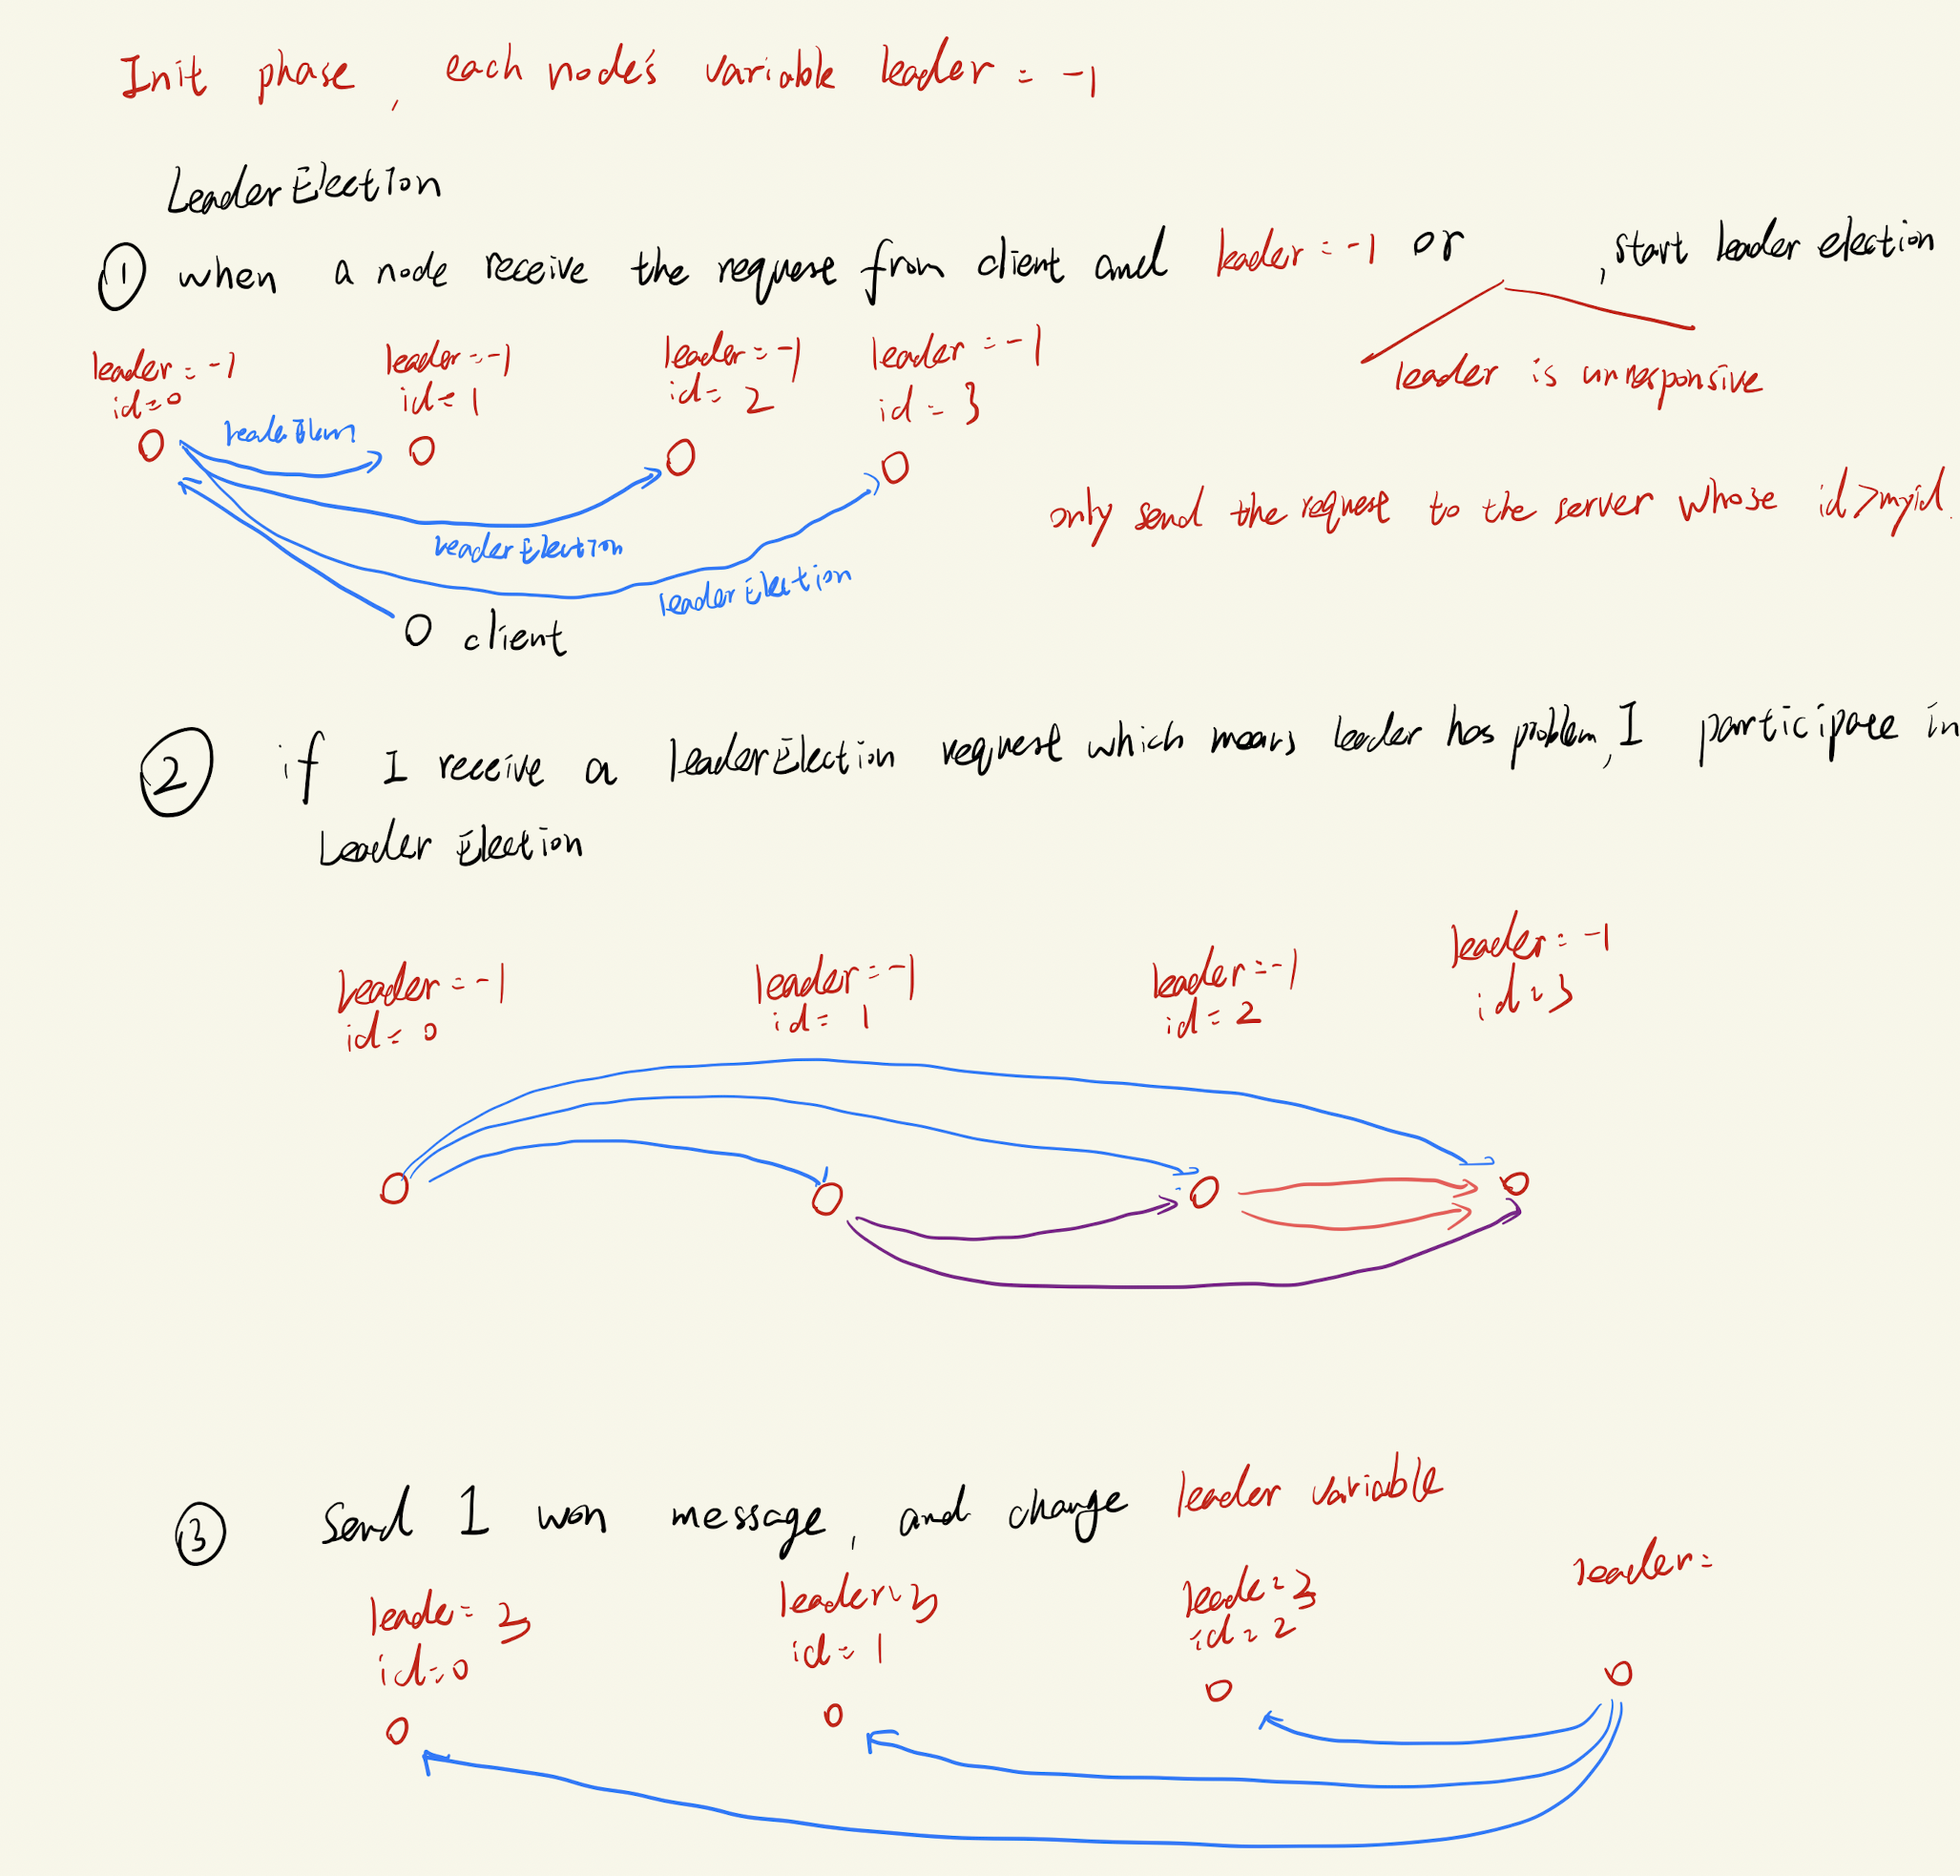 Init phase, each node's variable leader = -1
LeaderElection
① when a node receive the request from client and leader = -1 or , start leader election
leader is unresponsive
leader = -1
id=0
leader=-1
id=1
leader=-1
id=2
leader = -1
id=3
LeaderElection
LeaderElection
only send the request to the server whose id>myid.
client
② if I receive a leaderElection request which means leader has problem, I participate in
Leader Election
Leader = -1
id= 0
leader = -1
id= 1
leader = -1
id = 2
leader = -1
id=3
③ Send I won message, and change leader variable
leade = 3
id=0
leader=3
id= 1
leade=3
id=2
leader=